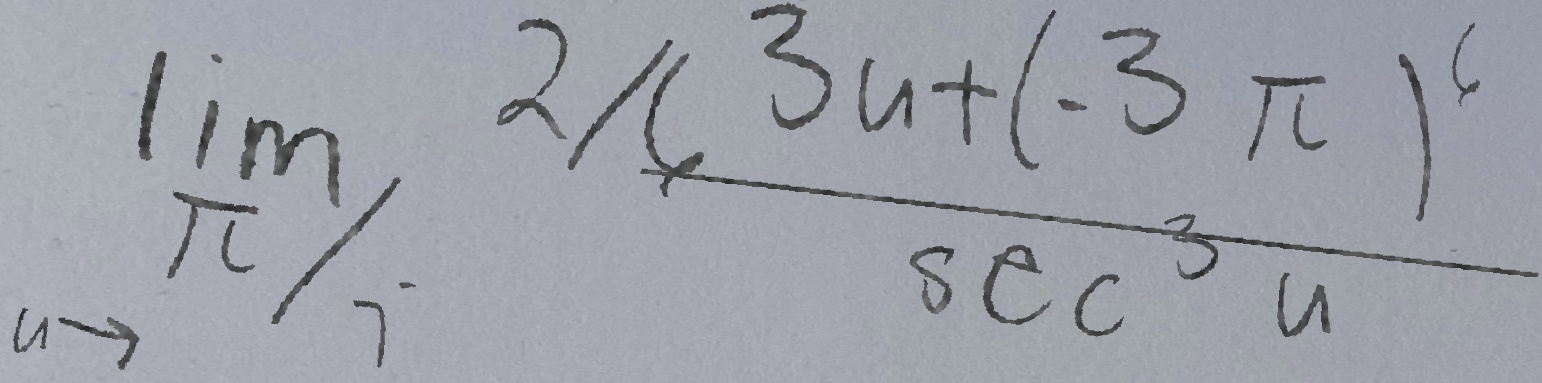 \lim_{u \to \pi/7^-} \frac{2/(3u+(-3\pi)^6}{\sec^3 u}